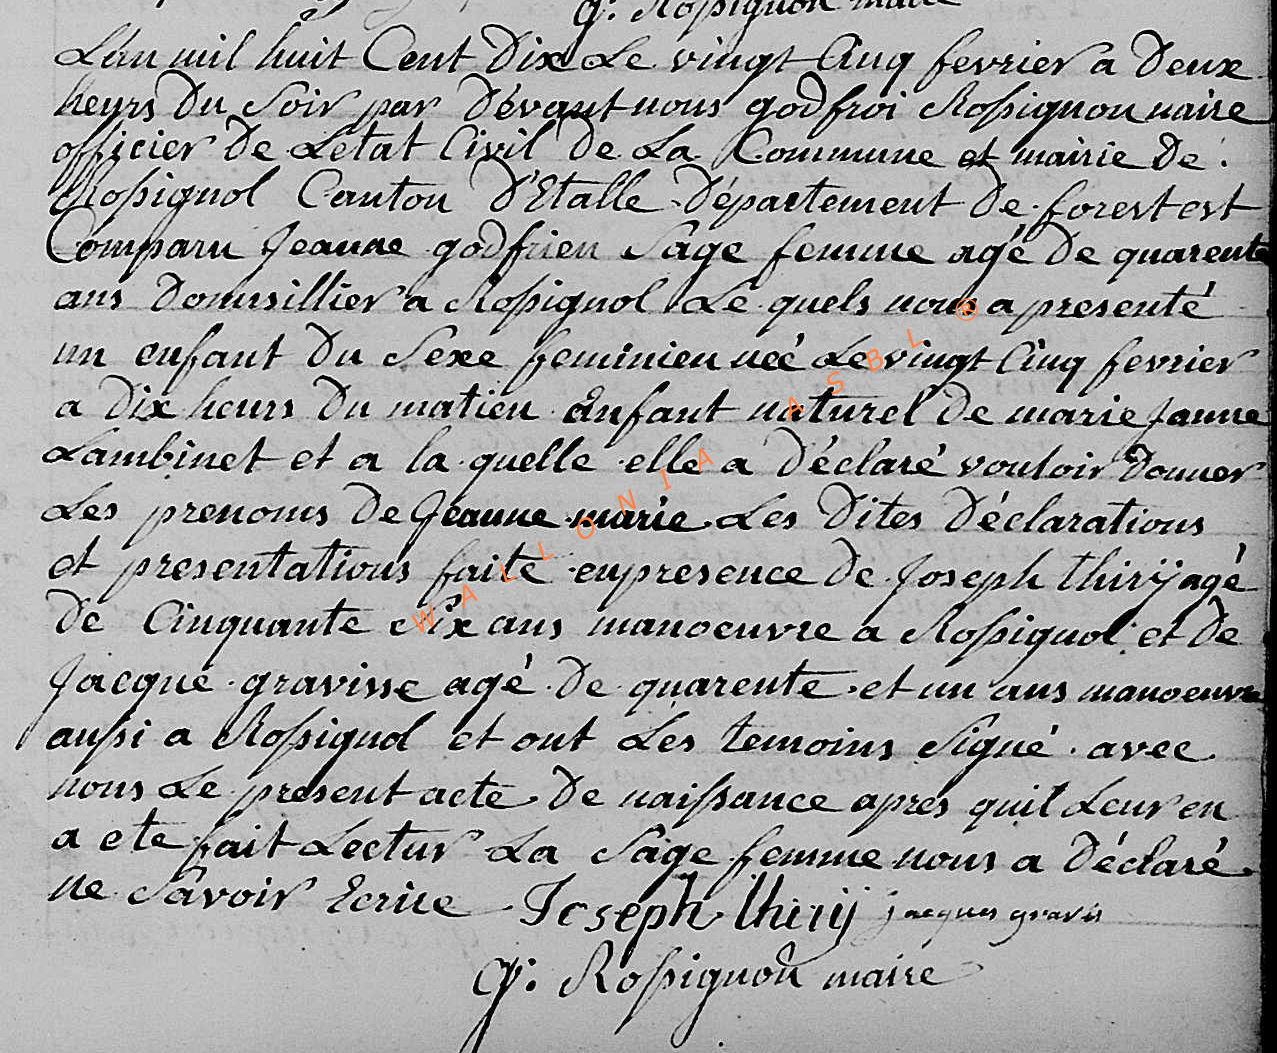 G. Rossignon maire
L'an mil huit Cent Dix Le vingt Cinq fevrier a Deux
heurs Du Soir par Dévant nous godfroi Rossignon maire
officier De Letat Civil De La Commune et mairie De
Rossignol Canton D'Etalle Département De forest est
Comparu Jeanne godfrien Sage femme agé De quarente
ans Domisillier a Rossignol Le quels nous a presenté
un enfant Du Sexe feminien néé Le vingt Cinq fevrier
a Dix heurs Du matien Enfant naturel De marie Janne
Lambinet et a la quelle elle a Déclaré vouloir Donner
Les prenoms De Jeanne marie Les Dites Déclarations
et presentations faite enpresence De Joseph thirij agé
De Cinquante Six ans manoeuvre a Rossignol et De
Jacque gravisse agé De quarente et un ans manoeuvre
aussi a Rossignol et ont Les temoins Signé avec
nous Le present acte De naissance apres quil Leur en
a ete fait Lectur La Sage femme nous a Déclaré
ne Savoir Ecrire Joseph thirij jacques gravis
G. Rossignon maire
WALLONIA ASBL ®